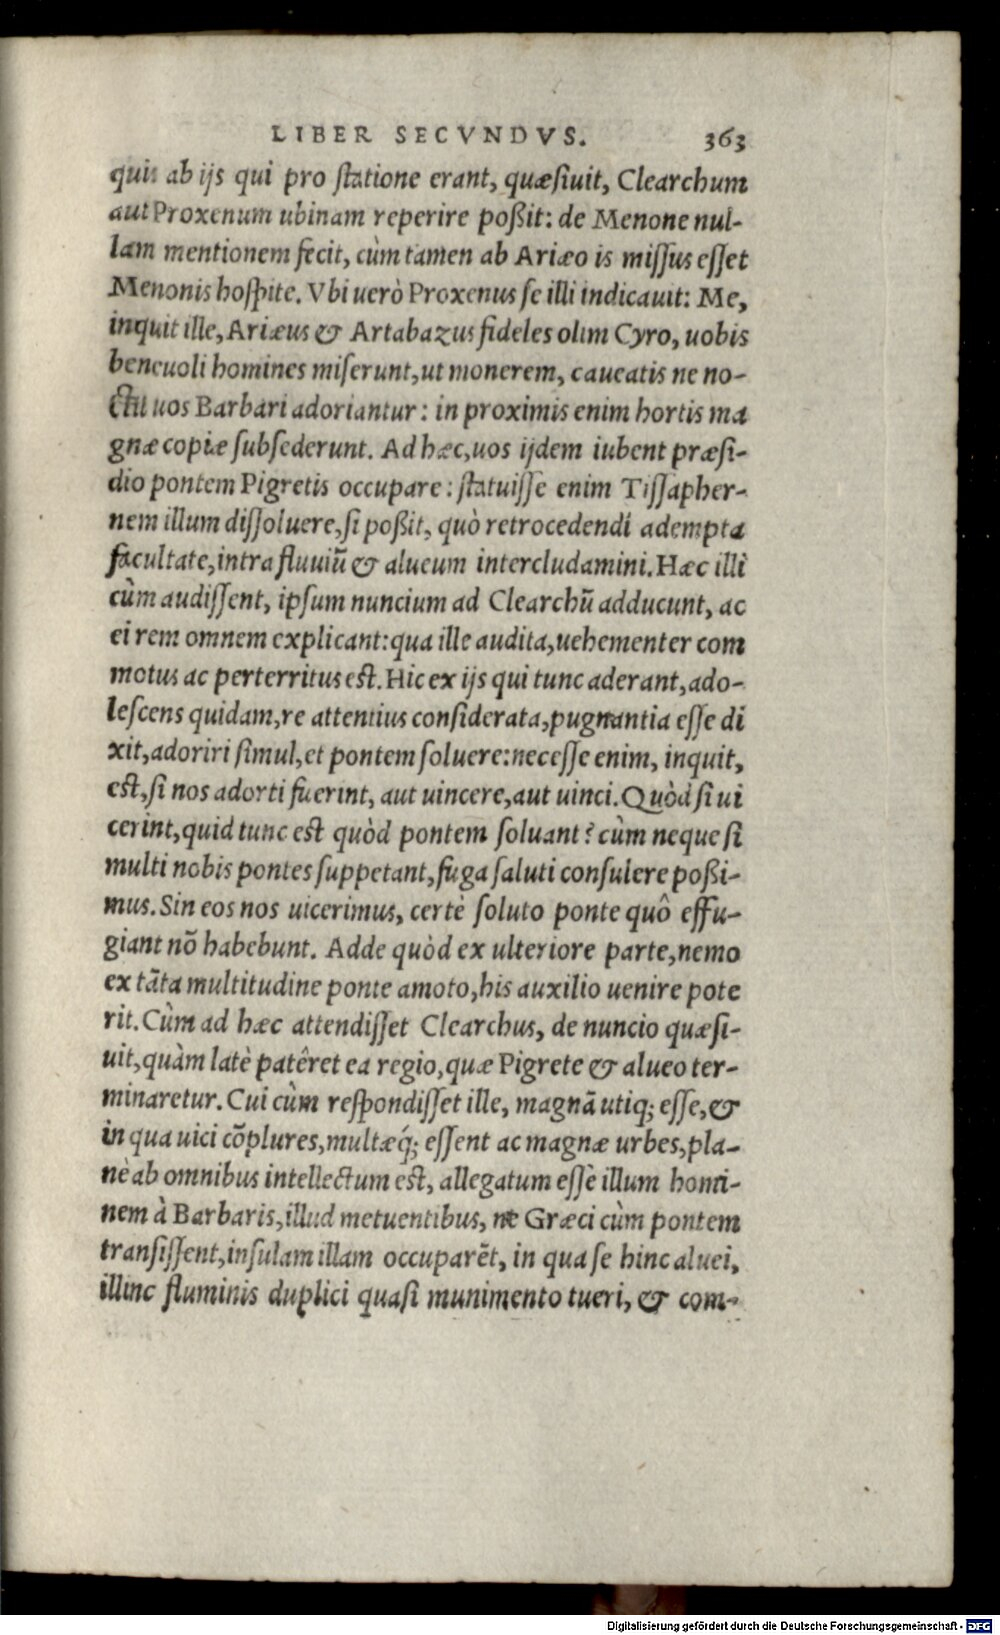 LIBER SECVNDVS. 363
quis ab ijs qui pro statione erant, quæsiuit, Clearchum
aut Proxenum ubinam reperire poßit: de Menone nul-
lam mentionem fecit, cùm tamen ab Ariæo is missus esset
Menonis hospite. Vbi uerò Proxenus se illi indicauit: Me,
inquit ille, Ariæus & Artabazus fideles olim Cyro, uobis
beneuoli homines miserunt, ut monerem, caueatis ne no-
ctu uos Barbari adoriantur: in proximis enim hortis ma
gnæ copiæ subsederunt. Ad hæc, uos ijdem iubent præsi-
dio pontem Pigretis occupare: statuisse enim Tissapher-
nem illum dissoluere, si poßit, quò retrocedendi adempta
facultate, intra fluuiũ & alueum intercludamini. Hæc illi
cùm audissent, ipsum nuncium ad Clearchũ adducunt, ac
ei rem omnem explicant: qua ille audita, uehementer com
motus ac perterritus est. Hic ex ijs qui tunc aderant, ado-
lescens quidam, re attentius considerata, pugnantia esse di
xit, adoriri simul, et pontem soluere: necesse enim, inquit,
est, si nos adorti fuerint, aut uincere, aut uinci. Quòd si ui
cerint, quid tunc est quòd pontem soluant? cùm neque si
multi nobis pontes suppetant, fuga saluti consulere poßi-
mus. Sin eos nos uicerimus, certè soluto ponte quô effu-
giant nõ habebunt. Adde quòd ex ulteriore parte, nemo
ex tãta multitudine ponte amoto, his auxilio uenire pote
rit. Cùm ad hæc attendisset Clearchus, de nuncio quæsi-
uit, quàm latè patêret ea regio, quæ Pigrete & alueo ter-
minaretur. Cui cùm respondisset ille, magnã utiq; esse, &
in qua uici cõplures, multæq́; essent ac magnæ urbes, pla-
nè ab omnibus intellectum est, allegatum esse illum homi-
nem à Barbaris, illud metuentibus, ne Græci cùm pontem
transissent, insulam illam occuparẽt, in qua se hinc aluei,
illinc fluminis duplici quasi munimento tueri, & com-
Digitalisierung gefördert durch die Deutsche Forschungsgemeinschaft - DFG